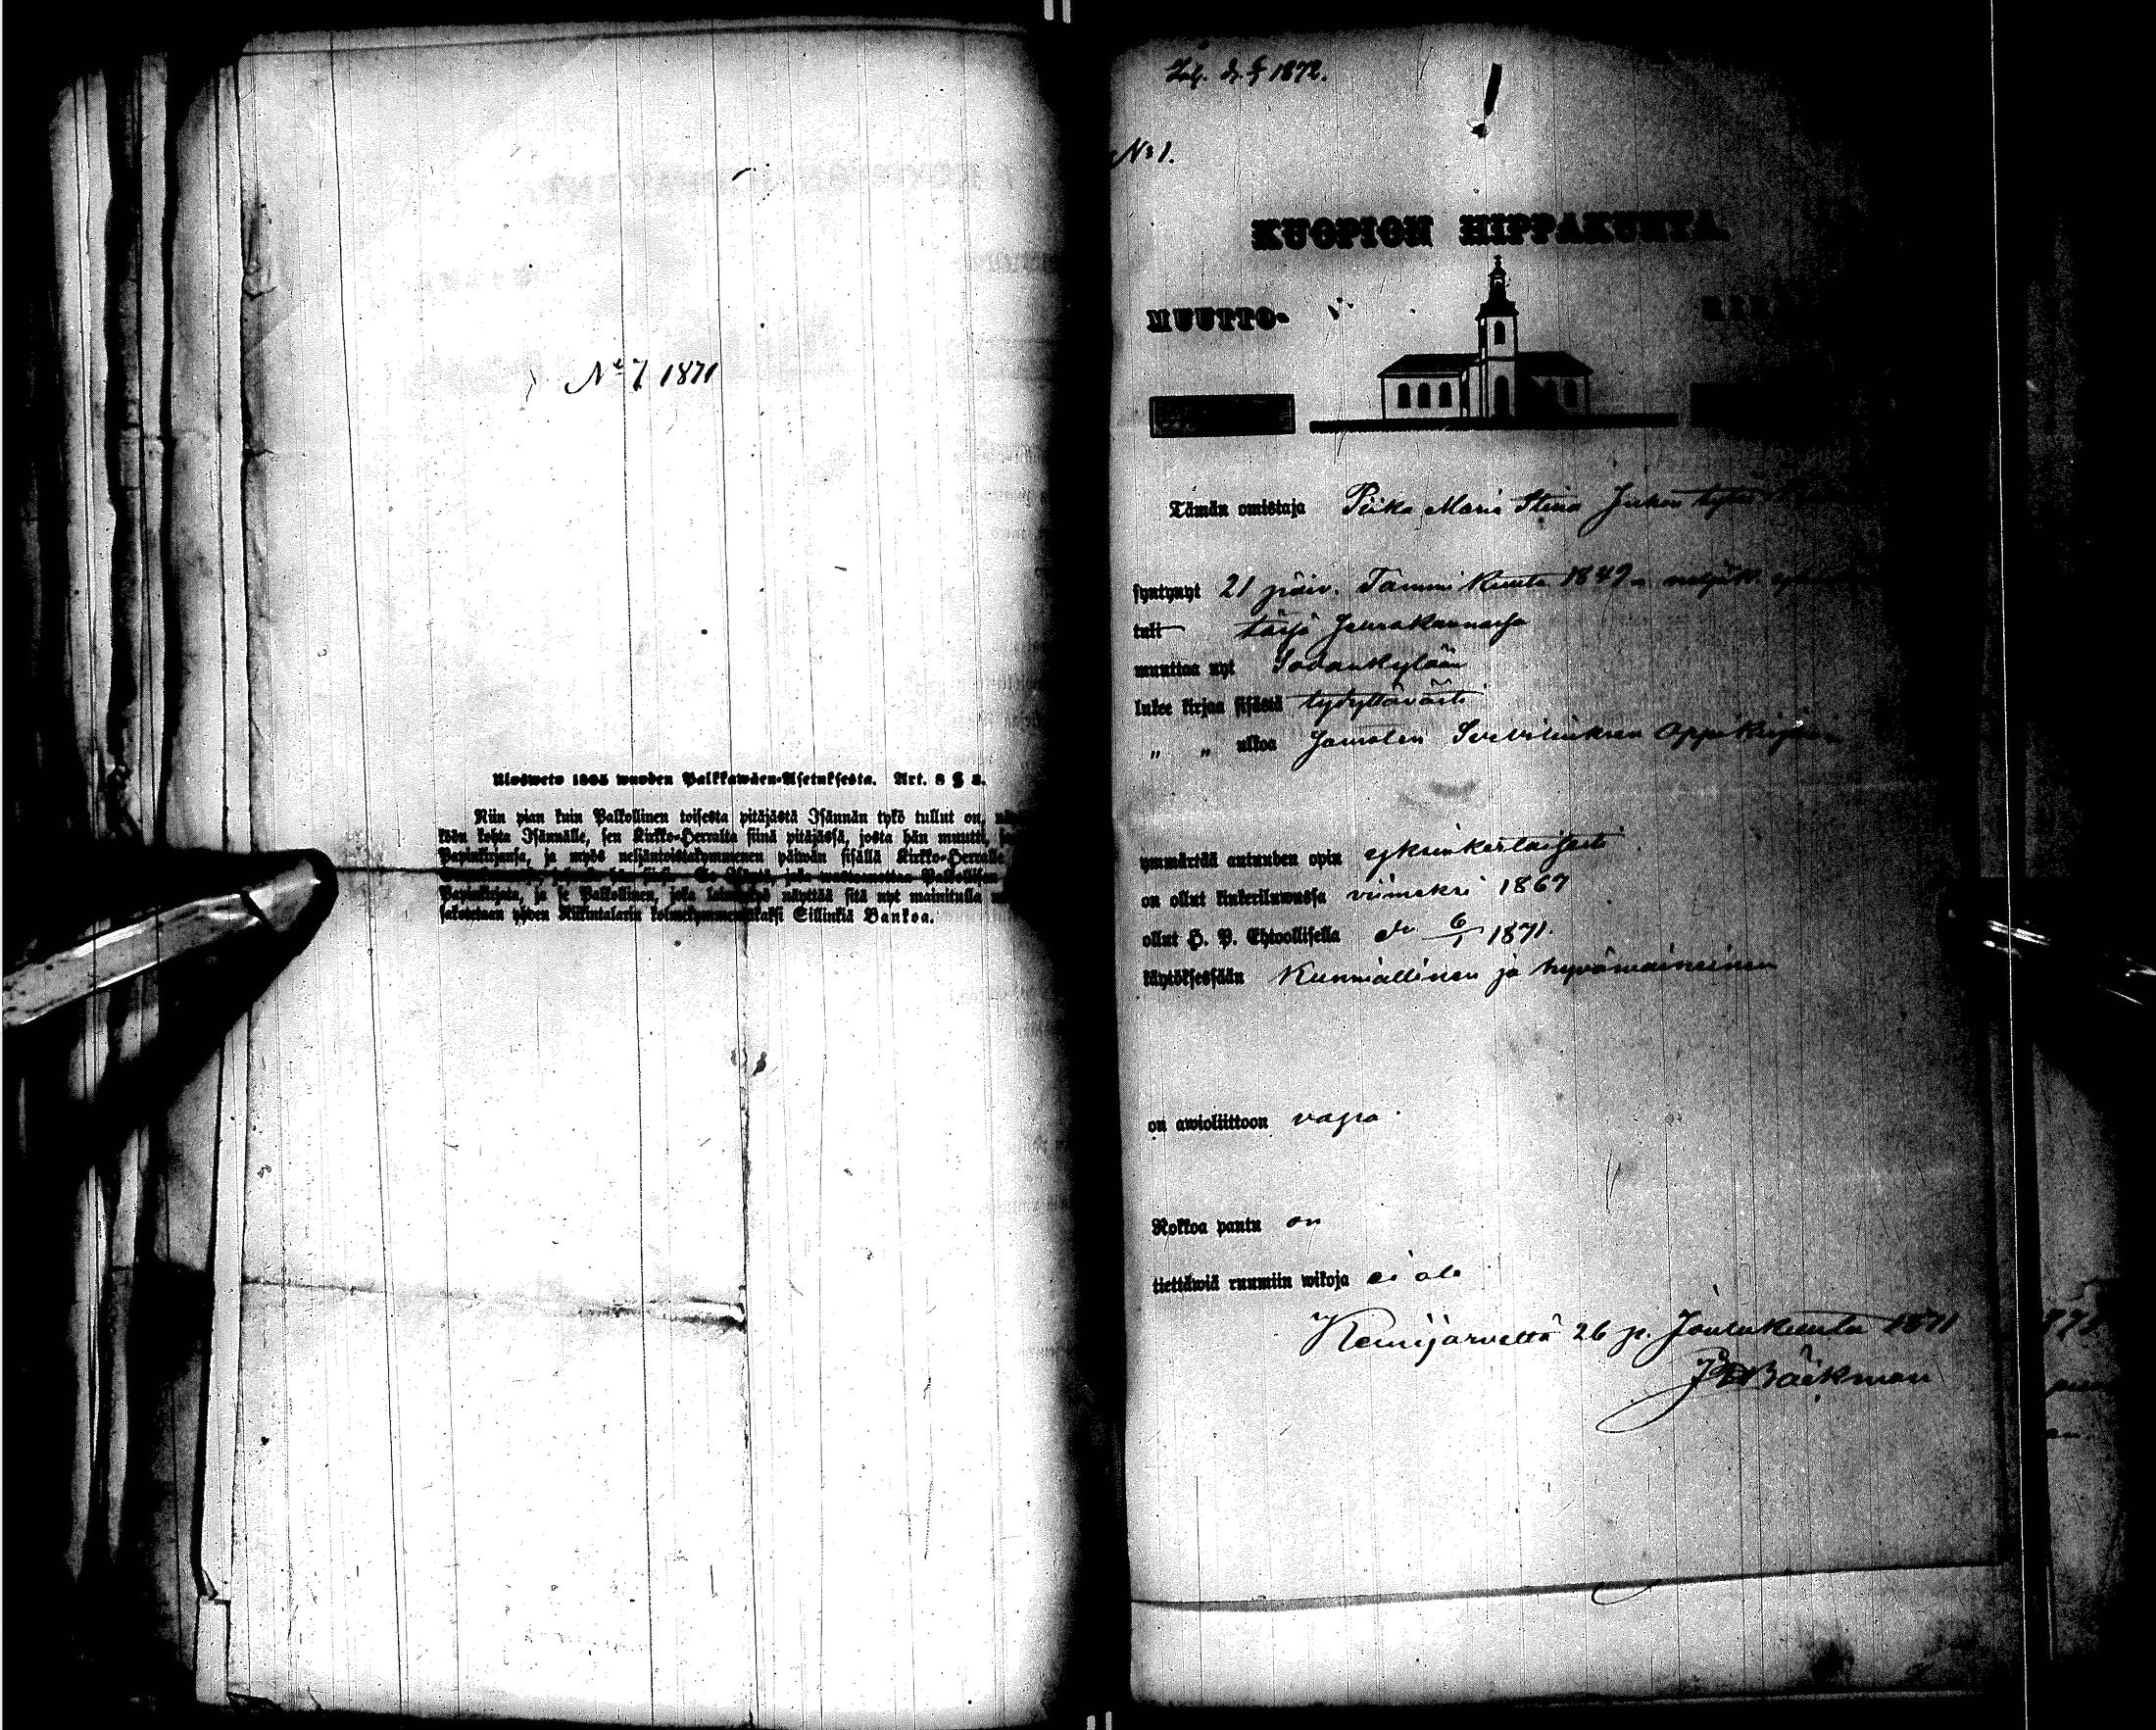 № 7 1871
Ulosweto 1865 wuoden Palkkawäen-Asetuksesta. Art. 8 § 3.
Niin pian kuin Palkollinen toisesta pitäjästä Isännän tykö tullut on,
kohta Isännälle, sen Kirkko-Herralta siinä pitäjässä, josta hän muutti,
Papinkirjansa, ja myös neljäntoistakymmenen päiwän sisällä Kirkko-Herralle
Papinkirjata, ja se Palkollinen, joka näyttää sitä nyt mainitulla
sakotetaan yhden Riikintalarin kolmekymmentäkaksi Sillinkiä Bankoa.
1872.
№ 1.
KUOPION HIPPAKUNTA.
MUUTTO-
Tämän omistaja Piika Maria Stina Juhon tytär
syntynyt 21 päiv. Tammi Kuuta 1849
tuli tässä Seurakunnassa
muuttaa nyt Sodankylään
lukee kirjaa sisästä tydyttävästi
„ „ ulkoa
ymmärtää autuuden opin yksinkertaisesti
on ollut kinkeriluwussa viimeksi 1867
ollut H. P. Ehtoollisella d. 6/1 1871.
käytöksessään Kunniallinen ja hyvämaineinen
on awioliittoon vapaa
Rokkoa pantu on
tiettäwiä ruumiin wikoja ei ole
Kemijärveltä 26 p. Joulukuuta 1871
Bäckman